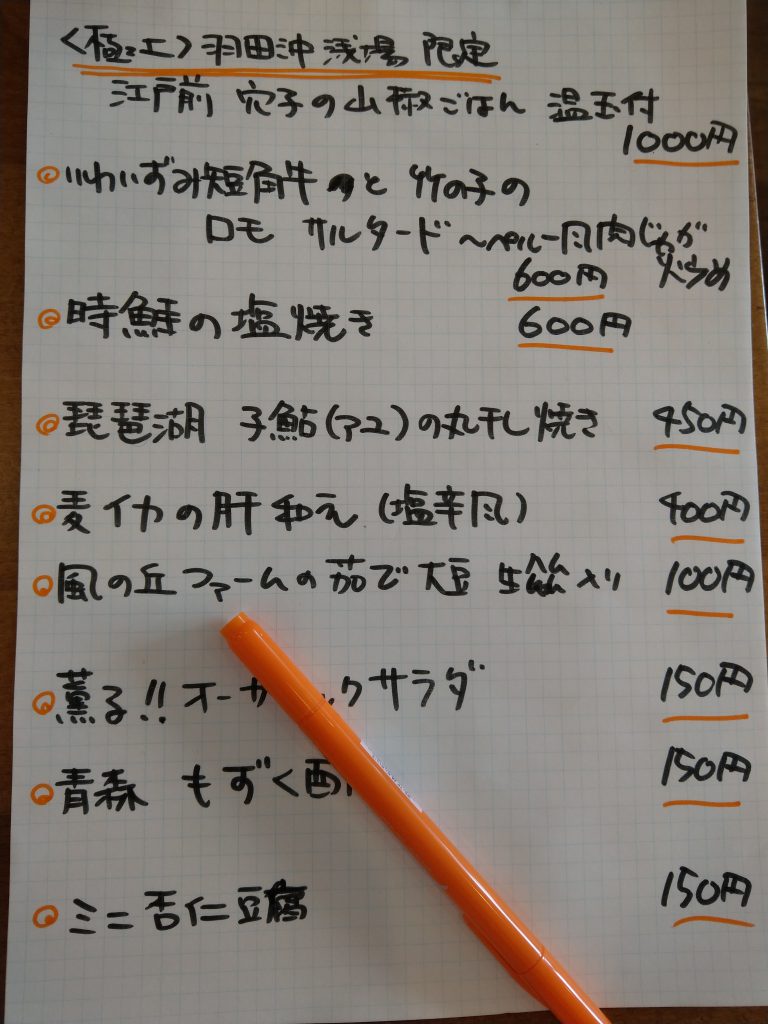 〈極上〉羽田沖 浅場 限定
江戸前 穴子の山椒ごはん 温玉付
1000円
いわいずみ短角牛と 竹の子の
ロモ サルタード 〜ペルー風肉じゃが
600円 炒め
時鮭の塩焼き 600円
琵琶湖 子鮎(アユ)の丸干し焼き 450円
麦イカの肝和え (塩辛風) 400円
風の丘ファームの茹で大豆 入り 100円
薫る!! サラダ 150円
青森 もずく酢 150円
ミニ杏仁豆腐 150円